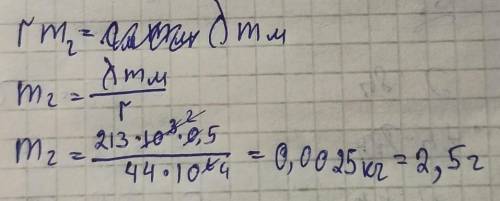 r m₂ = λ m м
m₂ = λ m м / r
m₂ = 213 · 10² · 5 / 44 · 10⁴ = 0,0025 кг = 2,5 г